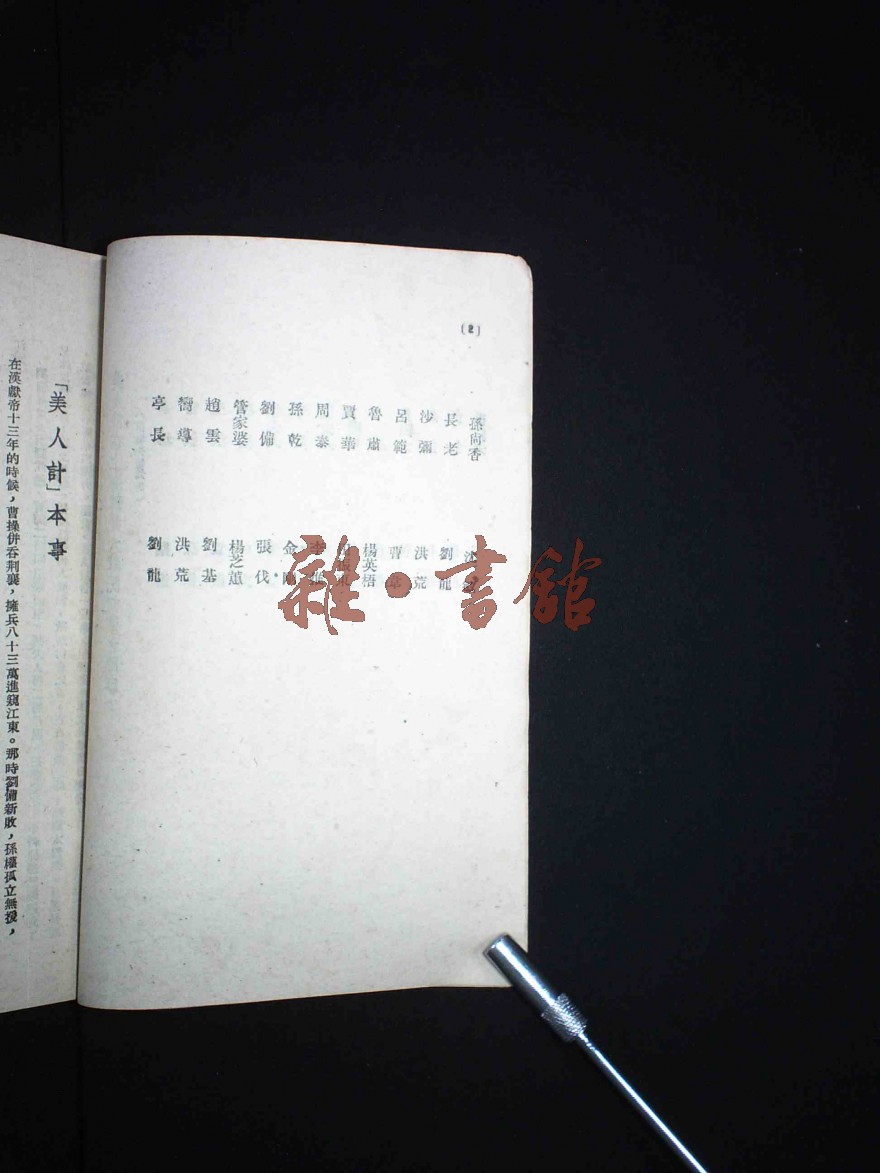 (2)
孫尚香
長老
沙彌
呂範
魯肅
賈華
周泰
孫乾
劉備
管家婆
趙雲
嚮導
亭長
劉龍
洪荒
曹
楊英梧
李
金
張伐
楊芝蕙
劉基
洪荒
劉龍
「美人計」本事
在漢獻帝十三年的時候，曹操併吞荆襄，擁兵八十三萬進窺江東。那時劉備新敗，孫權孤立無援，
雜·書館